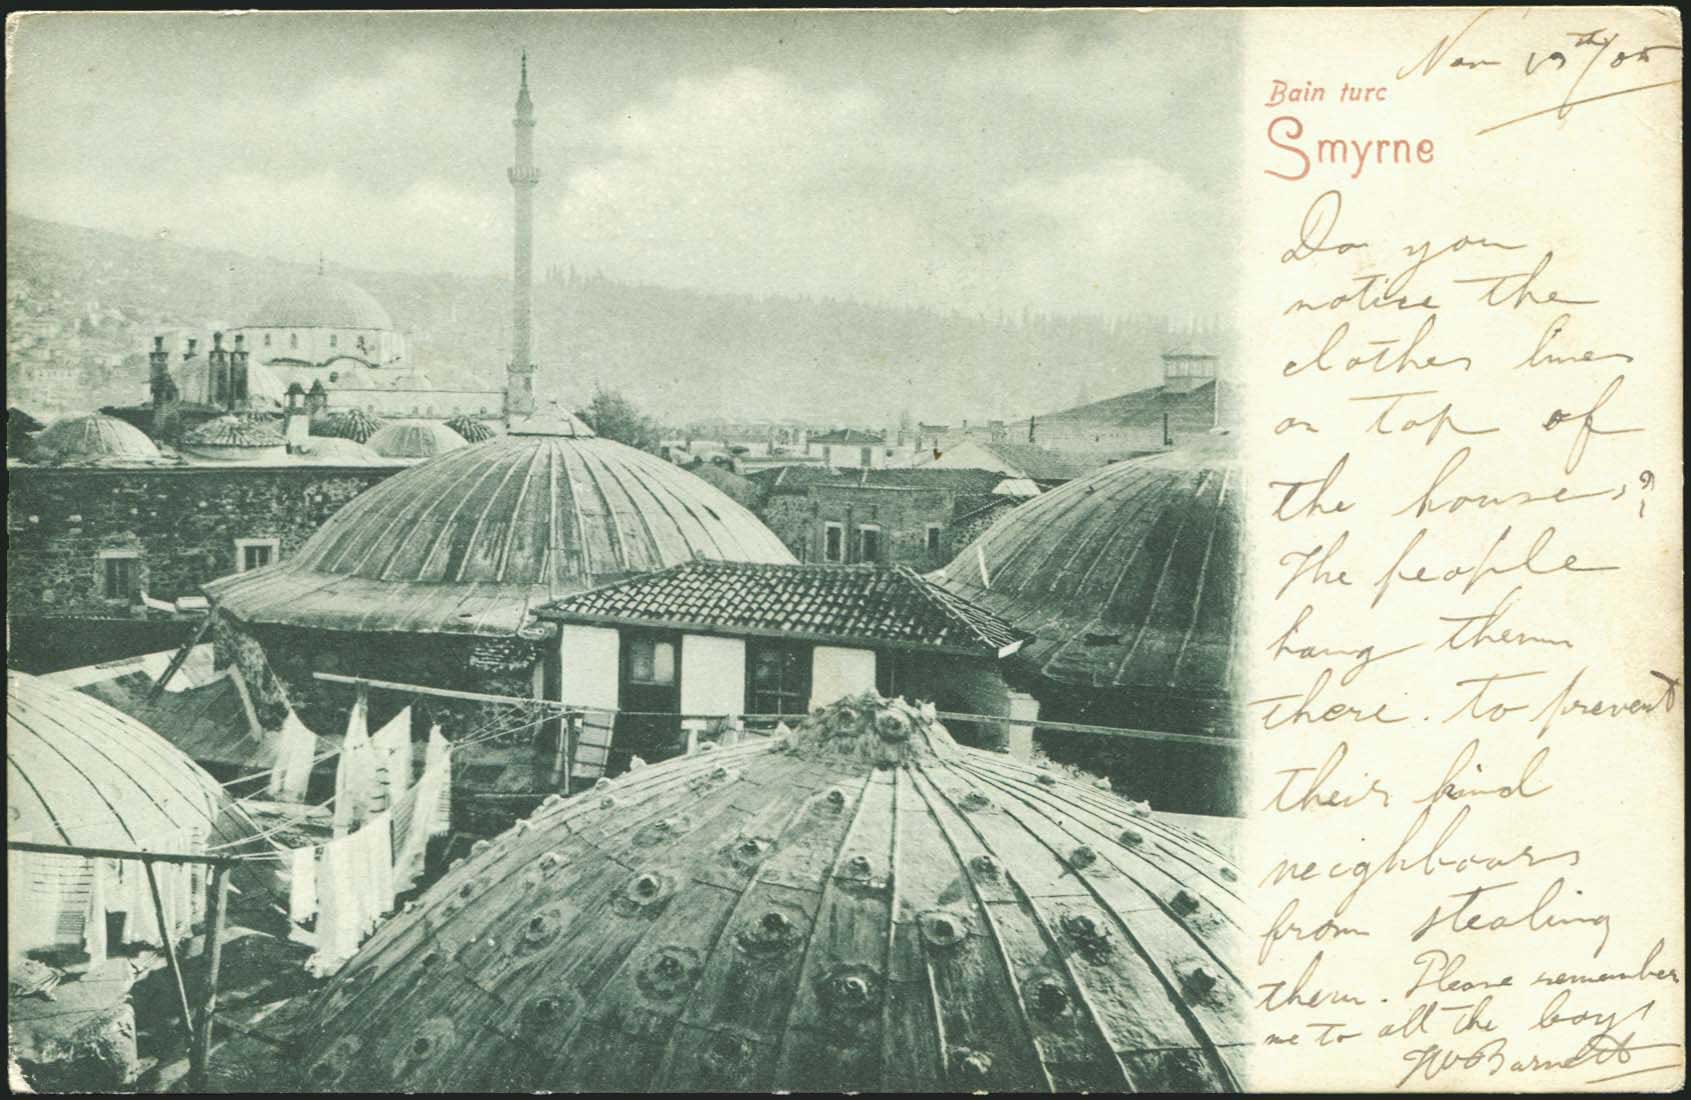 Nov 19th/05
Bain turc
Smyrne
Do you
notice the
clothes lines
on top of
the houses?
The people
hang them
there. to prevent
their kind
neighbours
from stealing
them. Please remember
me to all the boys
Barnett